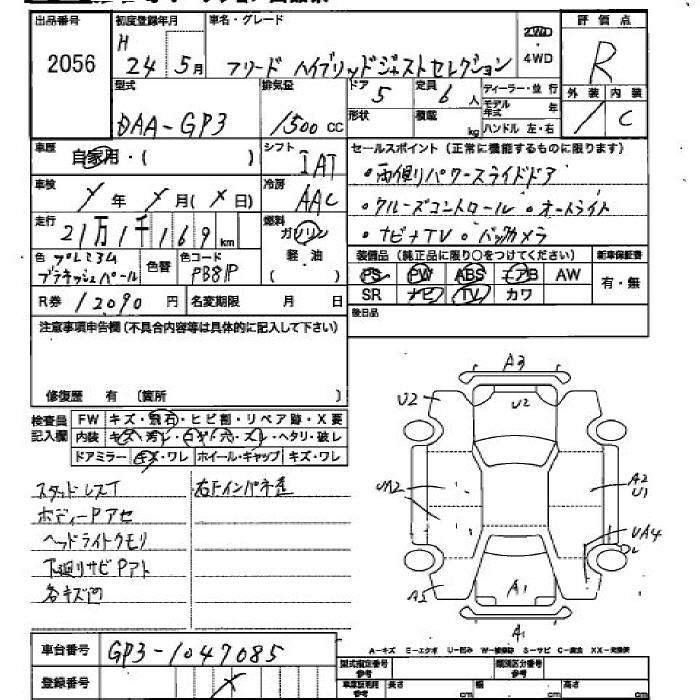 出品番号 初度登録年月 車名・グレード 評価点
2056 H 24年5月 フリード ハイブリッドジャストセレクション 2WD・4WD R
型式 排気量 ドア 5 定員 6人 ディーラー・並行 外装 内装
DAA-GP3 1500cc 形状 積載 kg モデル年式 年 / C
ハンドル 左・右
車歴 自家用・( ) シフト IAT セールスポイント(正常に機能するものに限ります)
・両側パワースライドドア
車検 年 月( 日) 冷房 AAC ・クルーズコントロール ・オートライト
走行 21万1千169km 燃料 ガソリン ・ナビ+TV ・バックカメラ
軽油
( )
色 プレミアムブラキッシュパール 色替 色コード PB81P 装備品(純正品に限り○をつけてください) 新車保証書
PS PW ABS エアB AW 有・無
R券 12090円 名変期限 月 日 SR ナビ TV カワ
注意事項申告欄(不具合内容等は具体的に記入して下さい) 後日品
修復歴 有 〔箇所 〕
検査員記入欄 FW キズ・飛石・ヒビ割・リペア跡・X要
内装 キズ・汚レ・コゲ・穴・スレ・ヘタリ・破レ
ドアミラー キズ・ワレ ホイール・キャップ キズ・ワレ
スタッドレスT 右Fインパネ歪
ボディーPアセ
ヘッドライトクモリ
下廻リサビPアト
各キズ凹
A3
U2 U2
UA2 A2
U1
UA4
A2 A1
A1
A-キズ E-エクボ U-凹み W-補修跡 S-サビ C-腐食 XX-交換済
車台番号 GP3-1047085 型式指定番号 参考 類別区分番号 参考
登録番号 X 車庫証明用 参考 長さ cm 幅 cm 高さ cm